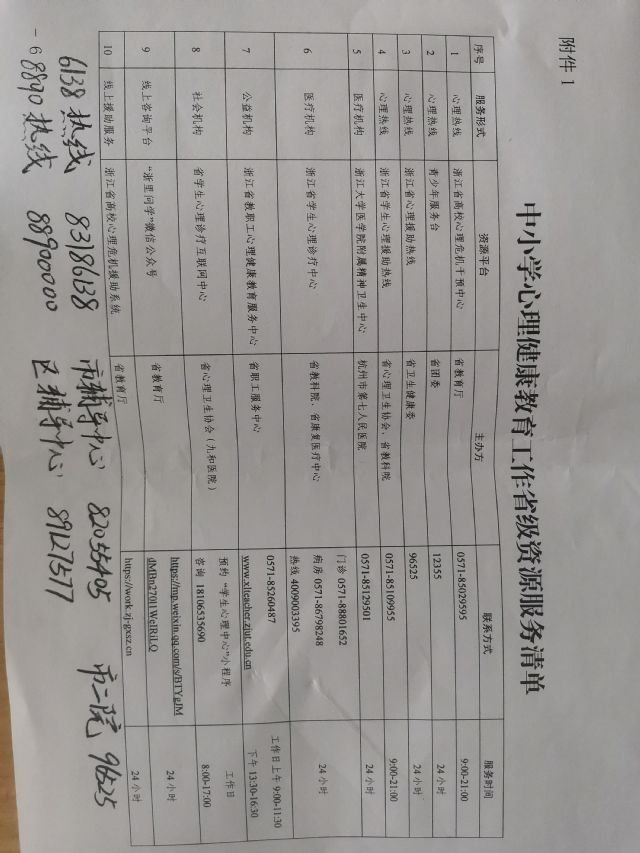 附件 1
中小学心理健康教育工作省级资源服务清单
序号 服务形式 资源平台 主办方 联系方式 服务时间
1 心理热线 浙江省高校心理危机干预中心 省教育厅 0571-85029595 9:00-21:00
2 心理热线 青少年服务台 省团委 12355 24 小时
3 心理热线 浙江省心理援助热线 省卫生健康委 96525 24 小时
4 心理热线 浙江省学生心理援助热线 省心理卫生协会、省教科院 0571-85109955 9:00-21:00
5 医疗机构 浙江大学医学院附属精神卫生中心 杭州市第七人民医院 0571-85129501 24 小时
6 医疗机构 浙江省学生心理诊疗中心 省教科院、省康复医疗中心 门诊 0571-88801652 24 小时
病房 0571-86798248
热线 4009003395
7 公益机构 浙江省教职工心理健康教育服务中心 省职工服务中心 0571-85260487 工作日上午 9:00-11:30
www.xlteacher.zjut.edu.cn 下午 13:30-16:30
8 社会机构 省学生心理诊疗互联网中心 省心理卫生协会（九和医院） 预约 “学生心理中心”小程序 工作日
咨询 18106535690 8:00-17:00
9 线上咨询平台 “浙里问学”微信公众号 省教育厅 https://mp.weixin.qq.com/s/BTYgJM 24 小时
10 线上援助服务 浙江省高校心理危机援助系统 省教育厅 https://work.zj-gxsz.cn 24 小时
6138 热线 83186138 市辅导中心 82055405 市二院 96525
8890 热线 88900000 区辅导中心 89127577
- 6